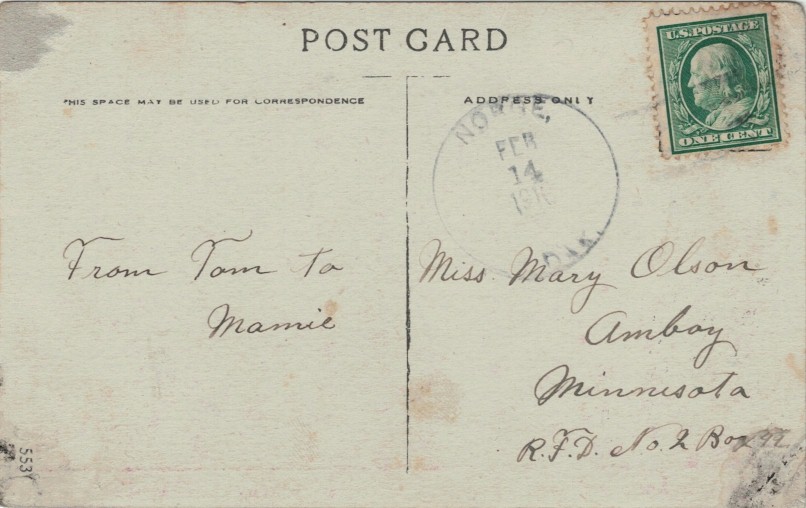 POST CARD
THIS SPACE MAY BE USED FOR CORRESPONDENCE
ADDRESS ONLY
U.S. POSTAGE
ONE CENT
NORGE,
FEB
14
DAK.
From Tom to
Mamie
Miss Mary Olson
Amboy
Minnesota
R.F.D. No. 2 Box
553